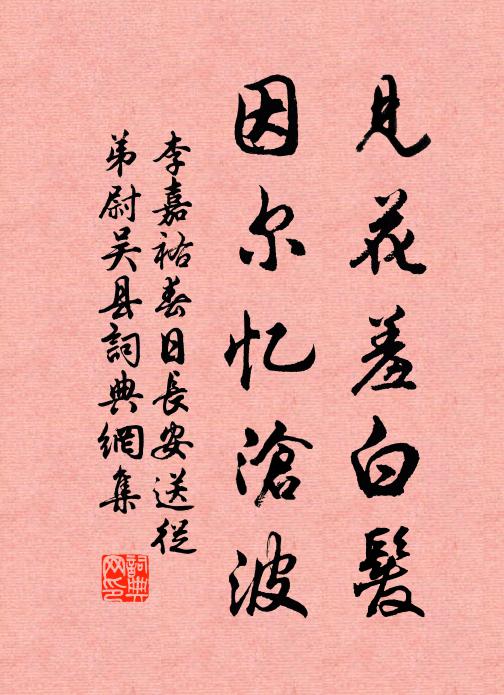 见花羞白髮
因尔忆滄波
李嘉祐春日長安送從
弟尉吴县詞典網集
詞典
网印